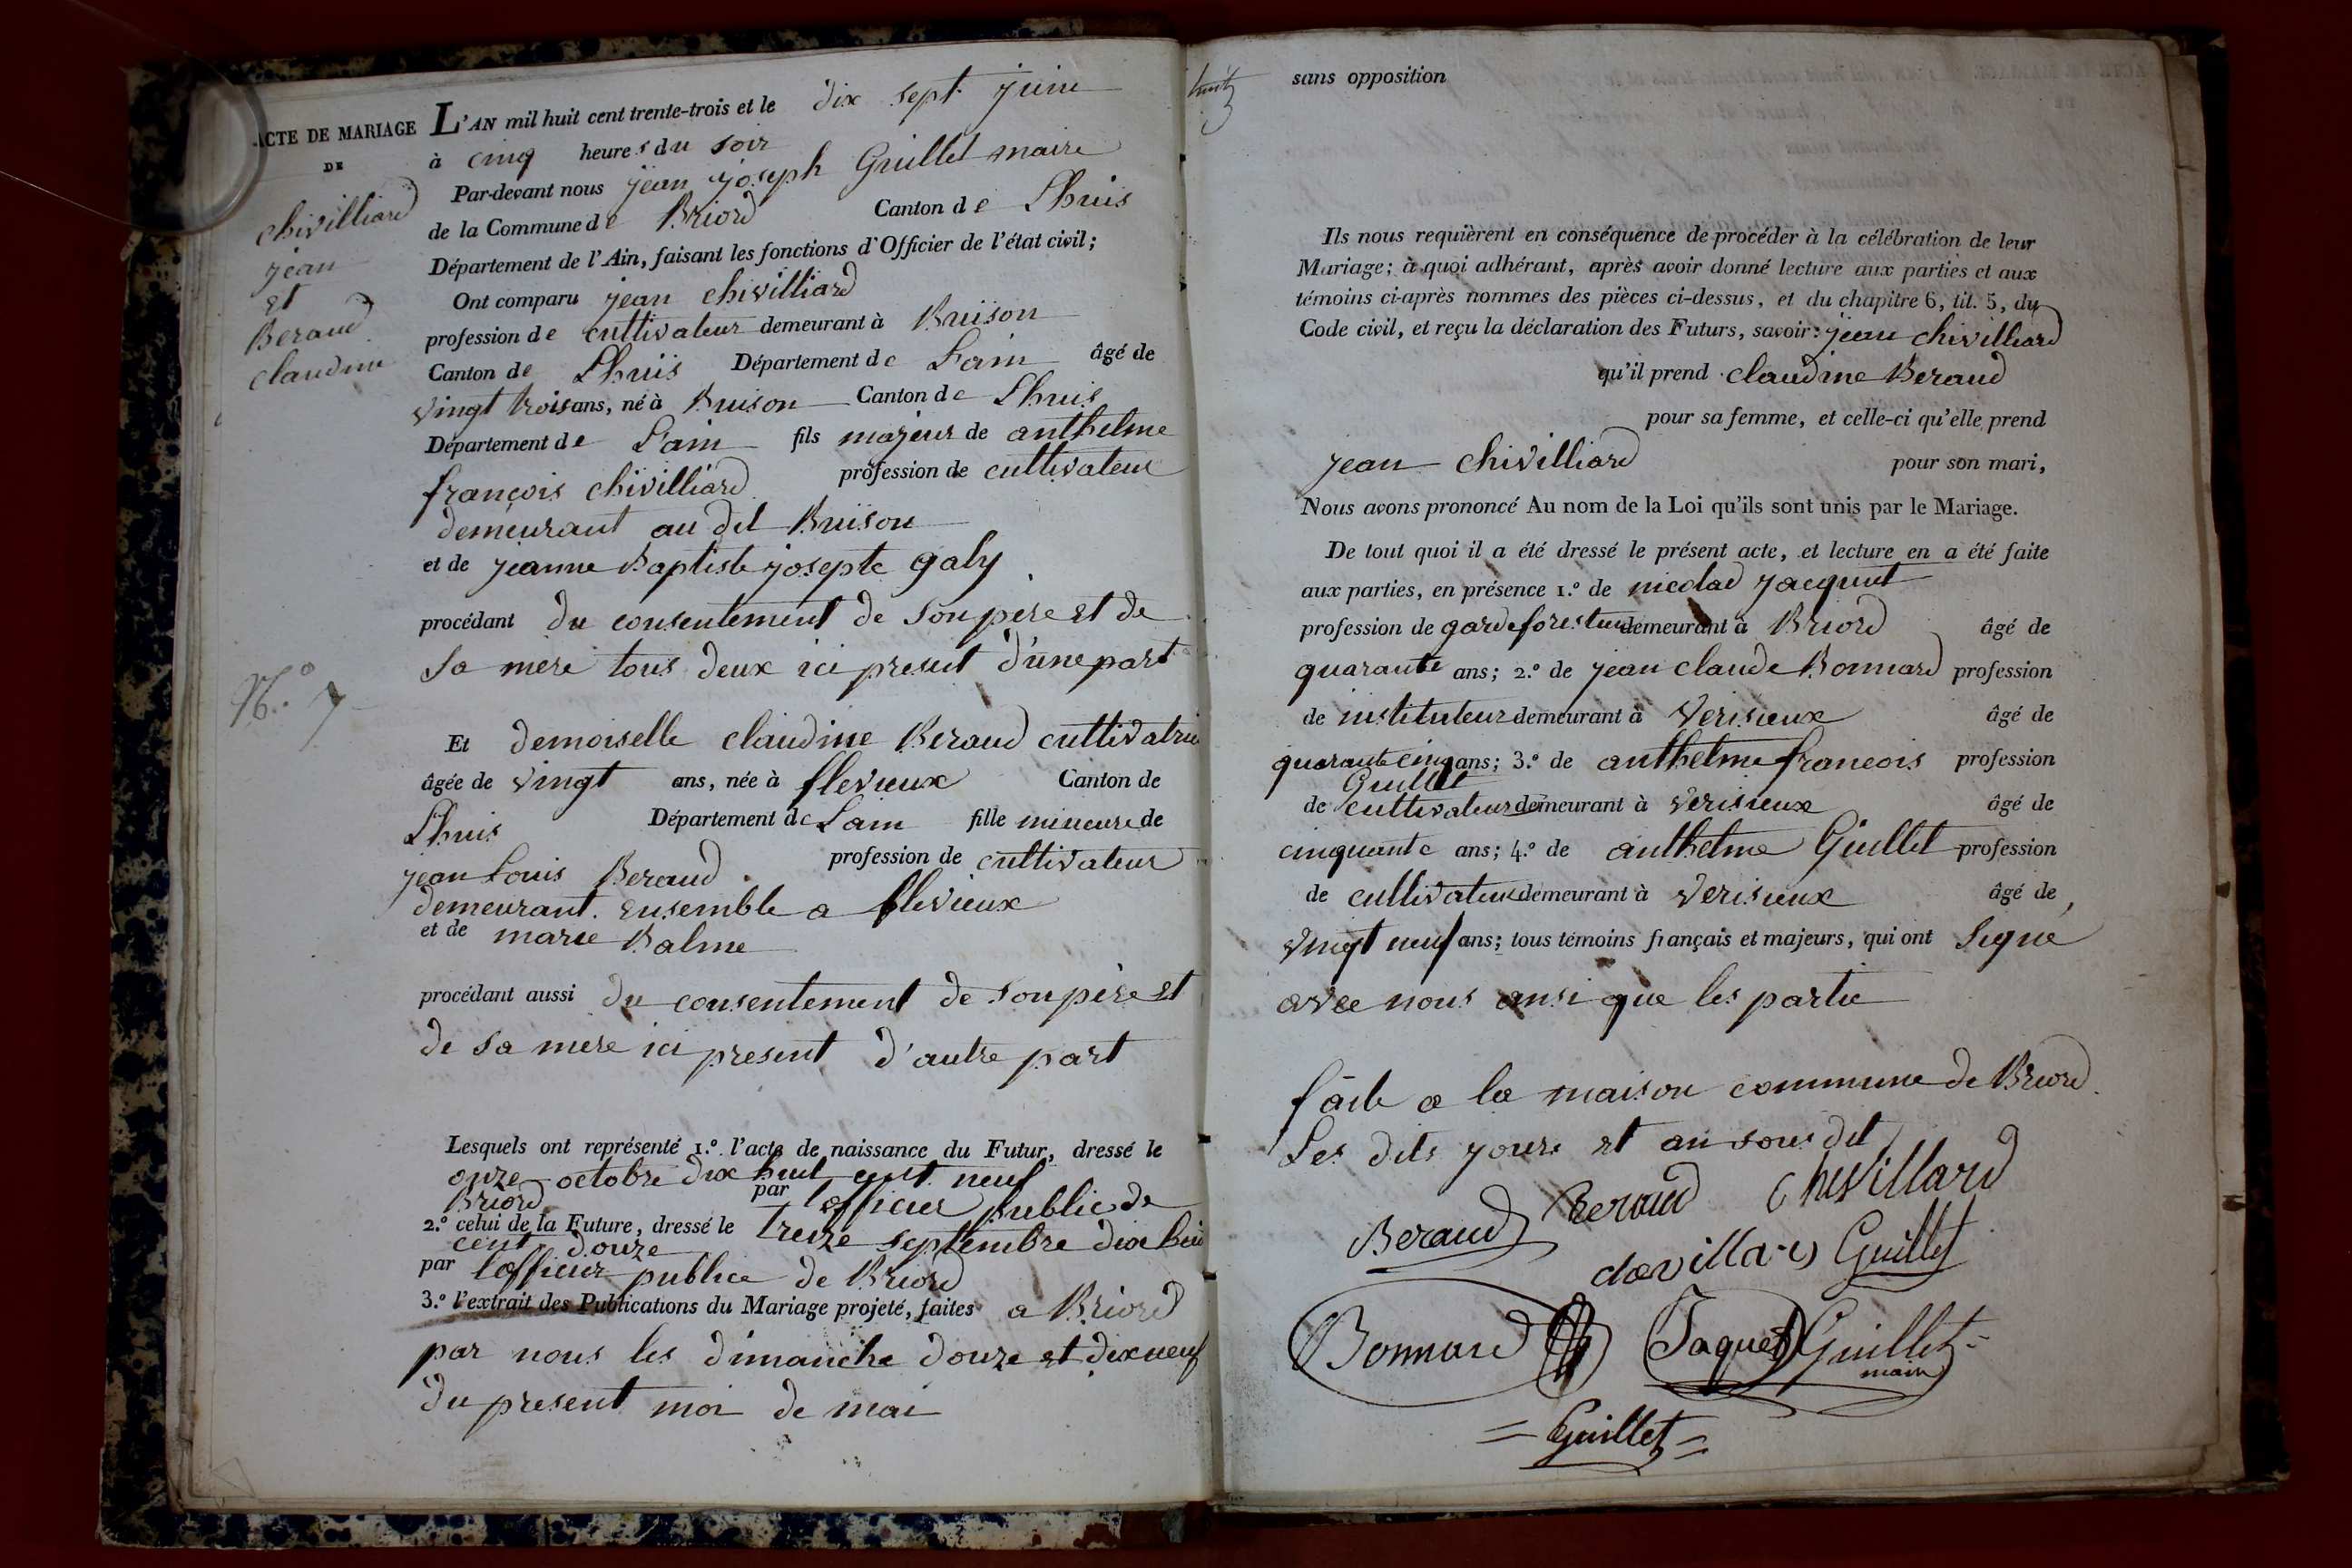 ACTE DE MARIAGE
DE
chivilliard
jean
et
Beraud
claudine
N.º 7
L'AN mil huit cent trente-trois et le dix sept juin
à cinq heures du soir
Par-devant nous jean joseph Guillet maire
de la Commune de Briord Canton de Lhuis
Département de l'Ain, faisant les fonctions d'Officier de l'état civil;
Ont comparu jean chivilliard
profession de cultivateur demeurant à Buison
Canton de Lhuis Département de Lain âgé de
vingt trois ans, né à Buison Canton de Lhuis
Département de Lain fils majeur de anthelme
françois chivilliard profession de cultivateur
demeurant au dit Buison
et de jeanne Baptiste josepte galy
procédant du consentement de son pere et de
sa mere tous deux ici present d'une part
Et demoiselle claudine Beraud cultivatrice
âgée de vingt ans, née à flevieux Canton de
Lhuis Département de Lain fille mineure de
jean Louis Beraud profession de cultivateur
demeurant ensemble a flevieux
et de marie Balme
procédant aussi du consentement de son père et
de sa mere ici present d'autre part
Lesquels ont représenté 1.º l'acte de naissance du Futur, dressé le
onze octobre dix huit cent neuf
par l'officier public de
Briord
2.º celui de la Future, dressé le treize septembre dix huit
cent douze
par lofficier publice de Briord
3.º l'extrait des Publications du Mariage projeté, faites a Briord
par nous les dimanche douze et dix neuf
du present moi de mai
sans opposition
Ils nous requièrent en conséquence de procéder à la célébration de leur
Mariage; à quoi adhérant, après avoir donné lecture aux parties et aux
témoins ci-après nommés des pièces ci-dessus, et du chapitre 6, tit. 5, du
Code civil, et reçu la déclaration des Futurs, savoir: jean chivilliard
qu'il prend claudine Beraud
pour sa femme, et celle-ci qu'elle prend
jean chivilliard pour son mari,
Nous avons prononcé Au nom de la Loi qu'ils sont unis par le Mariage.
De tout quoi il a été dressé le présent acte, et lecture en a été faite
aux parties, en présence 1.º de nicolas jacquet
profession de garde forestier demeurant à Briord âgé de
quarante ans; 2.º de jean claude Bonnard profession
de instituteur demeurant à Verisieux âgé de
quarante cinq ans; 3.º de anthelme francois profession
Guillet
de cultivateur demeurant à Verisieux âgé de
cinquante ans; 4.º de anthelme Guillet profession
de cultivateur demeurant à Verisieux âgé de
vingt neuf ans; tous témoins français et majeurs, qui ont signé
avec nous ansi que les partie
faite a la maison commune de Briord
Les dits jours et an sous dit
Beraud Beraud chevillard
Guillet
Bonnard Jaquet Guillet
maire
Guillet